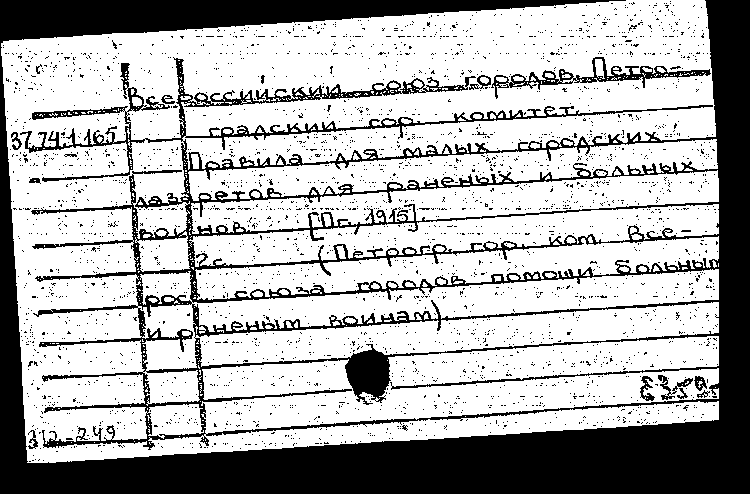 Всероссийский союз городов. Петро-
37.74.1.165 градский гор. комитет.
Правила для малых городских
лазаретов для раненых и больных
воинов. [Пг., 1915].
2с. (Петрогр. гор. ком. Все-
росс. союза городов помощи больным
и раненым воинам).
312-249